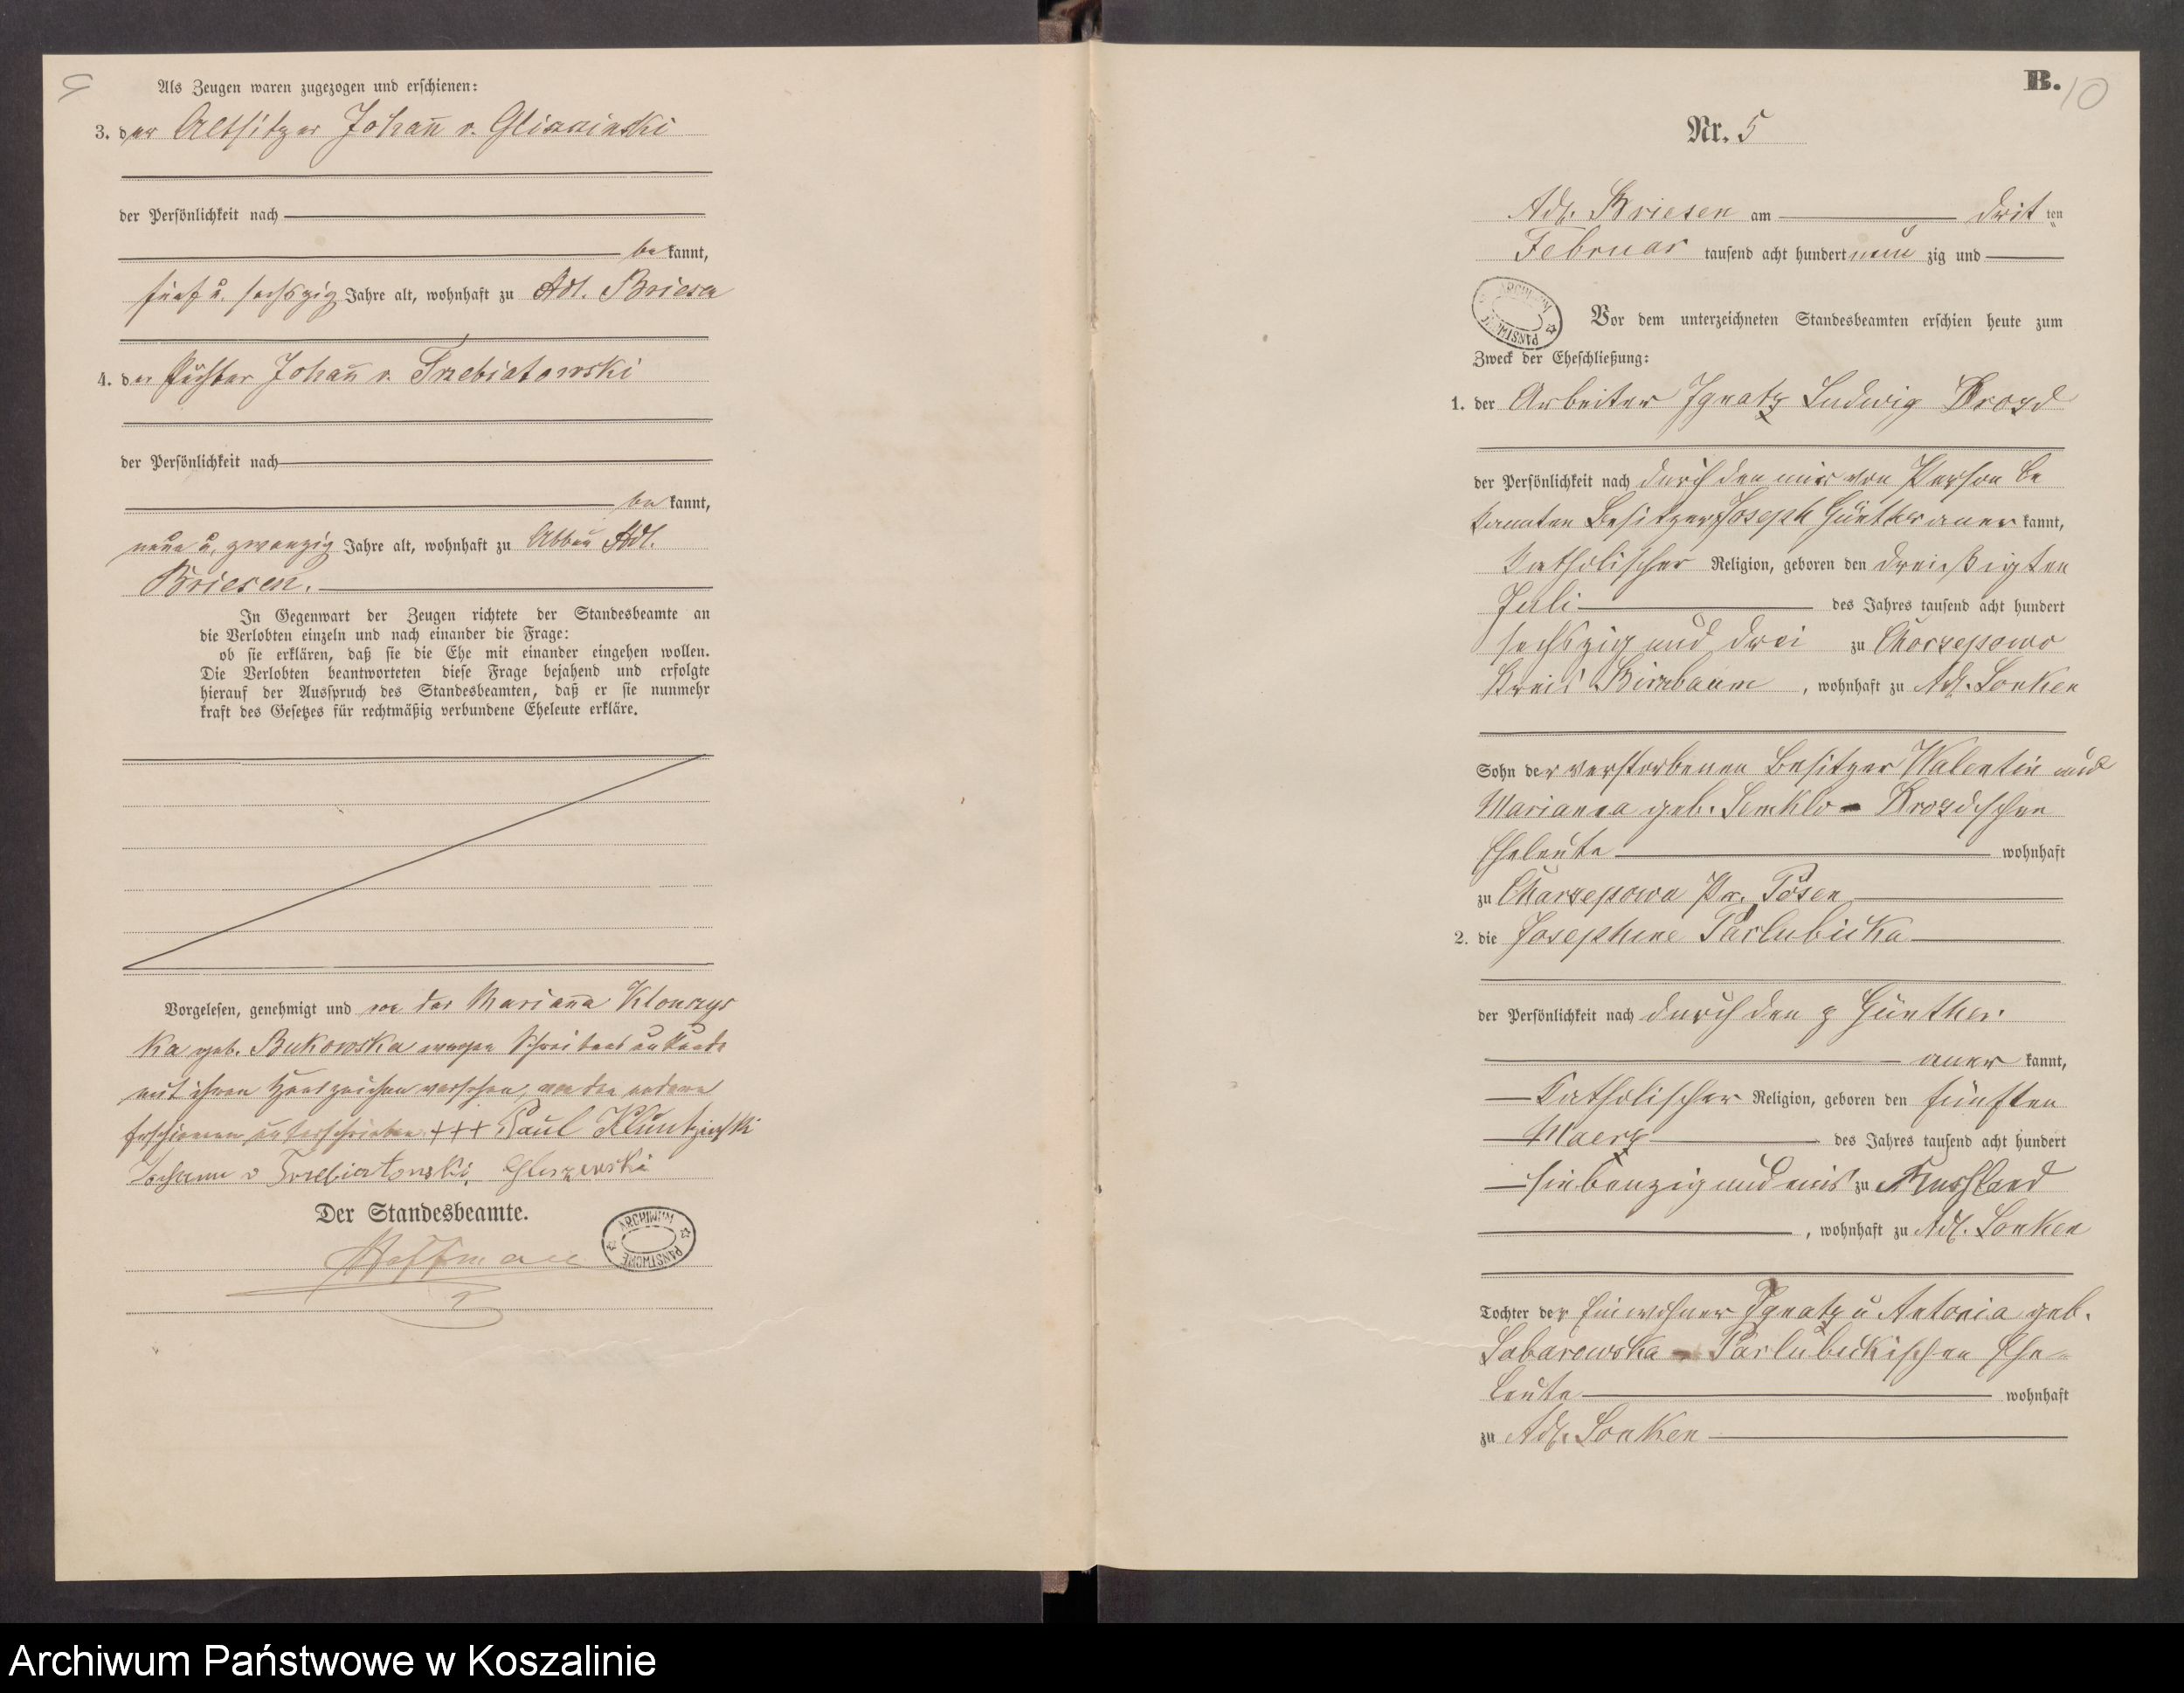 9
Als Zeugen waren zugezogen und erschienen:
3. der Altsitzer Johañ v. Gliszinski
der Persönlichkeit nach
be kannt,
fünf u. sechszig Jahre alt, wohnhaft zu Adl. Briesen
4. der Pächter Johañ v. Trzebiatowski
der Persönlichkeit nach
be kannt,
neun u. zwanzig Jahre alt, wohnhaft zu Abbau Adl.
Briesen.
In Gegenwart der Zeugen richtete der Standesbeamte an
die Verlobten einzeln und nach einander die Frage:
ob sie erklären, daß sie die Ehe mit einander eingehen wollen.
Die Verlobten beantworteten diese Frage bejahend und erfolgte
hierauf der Ausspruch des Standesbeamten, daß er sie nunmehr
kraft des Gesetzes für rechtmäßig verbundene Eheleute erkläre.
Vorgelesen, genehmigt und von der Mariana
ka geb. Bukowska wegen Schreibensunkunde
mit ihren Handzeichen versehen, von den anderen
Erschienenen unterschrieben +++ Paul
Johann v Trzebiatowski,
Der Standesbeamte.
Hoffmann
ARCHIWUM PAŃSTWOWE
B. 10
Nr. 5
Adl. Briesen am drit ten
Februar tausend acht hundert neun zig und
ARCHIWUM PAŃSTWOWE
Vor dem unterzeichneten Standesbeamten erschien heute zum
Zweck der Eheschließung:
1. der Arbeiter Ignatz Ludwig Drozd
der Persönlichkeit nach durch den mir von Person be
kannten Besitzer Joseph Günther aner kannt,
katholischer Religion, geboren den dreißigten
Juli des Jahres tausend acht hundert
sechszig und drei zu Chorzepowo
Kreis Birnbaum, wohnhaft zu Adl. Lonken
Sohn der verstorbenen Besitzer Valentin und
Marianna geb. Drozdschen
Eheleute wohnhaft
zu Charzepowa Pr. Posen
2. die Josephine Parlubicka
der Persönlichkeit nach durch den p Günther
aner kannt,
katholischer Religion, geboren den fünften
Maerz des Jahres tausend acht hundert
siebenzig und eins zu Russland
, wohnhaft zu Adl. Lonken
Tochter der Einwohner Ignatz u Antonia geb.
Sabarowska - Parlubickischen Ehe-
leute wohnhaft
zu Adl. Lonken
Archiwum Państwowe w Koszalinie